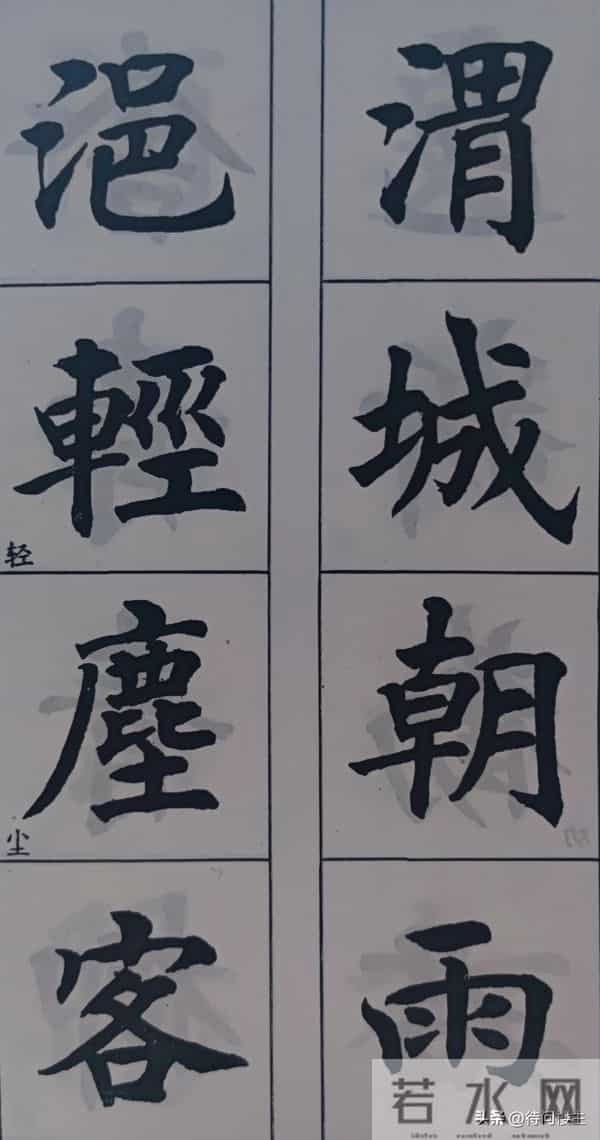 渭城朝雨
浥輕塵客
轻
尘
若水网
头条@待问楼主